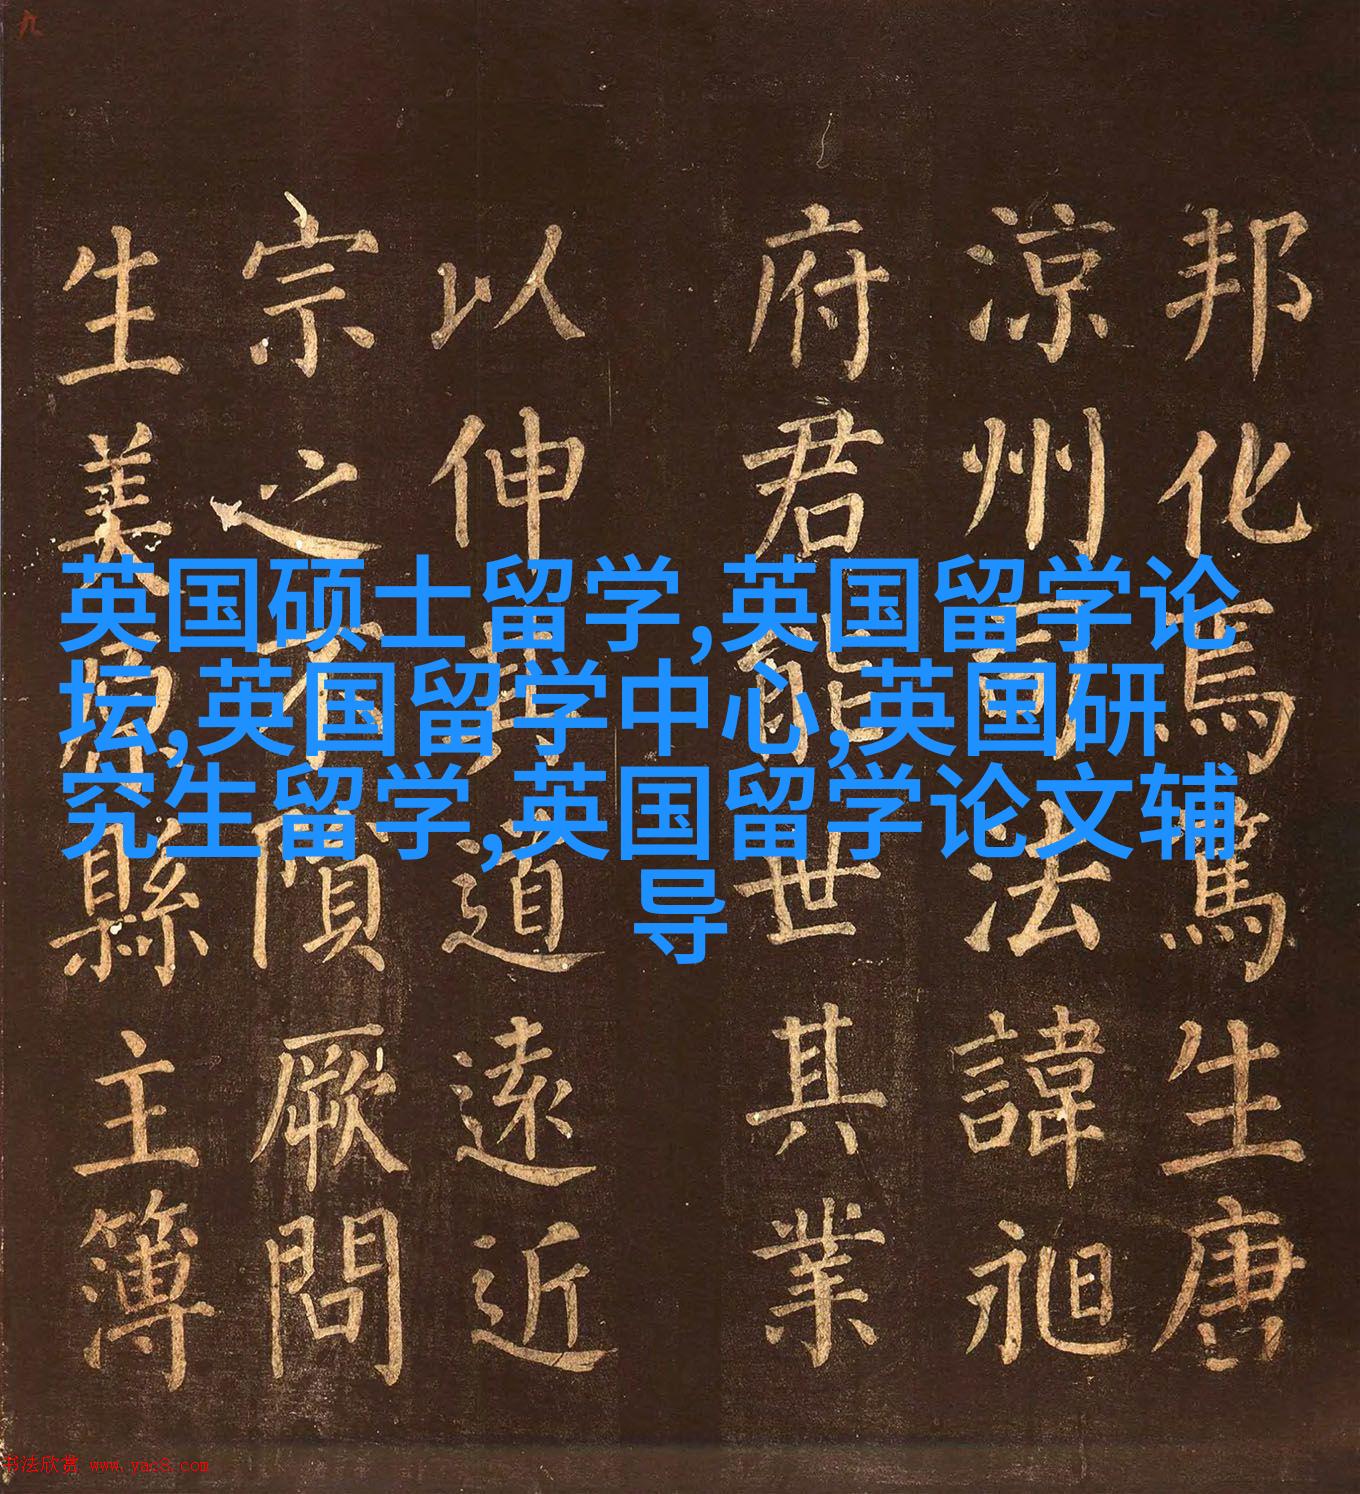 九
邦化焉篤生唐
涼州司法諱昶
府君能世其業
以伸道遠近
宗之不隕厥問
生美原縣主簿
英国硕士留学,英国留学论
坛,英国留学中心,英国研
究生留学,英国留学论文辅
导
书法欣赏 www.yac8.com